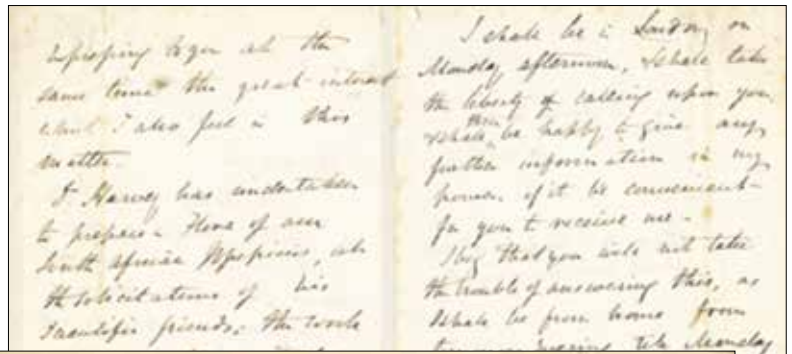 expressing to you at the
same time the great interest
which I also feel in this
matter.
Dr Harvey has undertaken
to prepare a Flora of our
South African Possessions, at
the solicitations of his
scientific friends; the work
I shall be in London on
Monday afternoon, I shall take
the liberty of calling upon you
& shall then be happy to give any
further information in my
power, if it be convenient
for you to receive me.
I beg that you will not take
the trouble of answering this, as
I shall be from home from
tomorrow morning till Monday